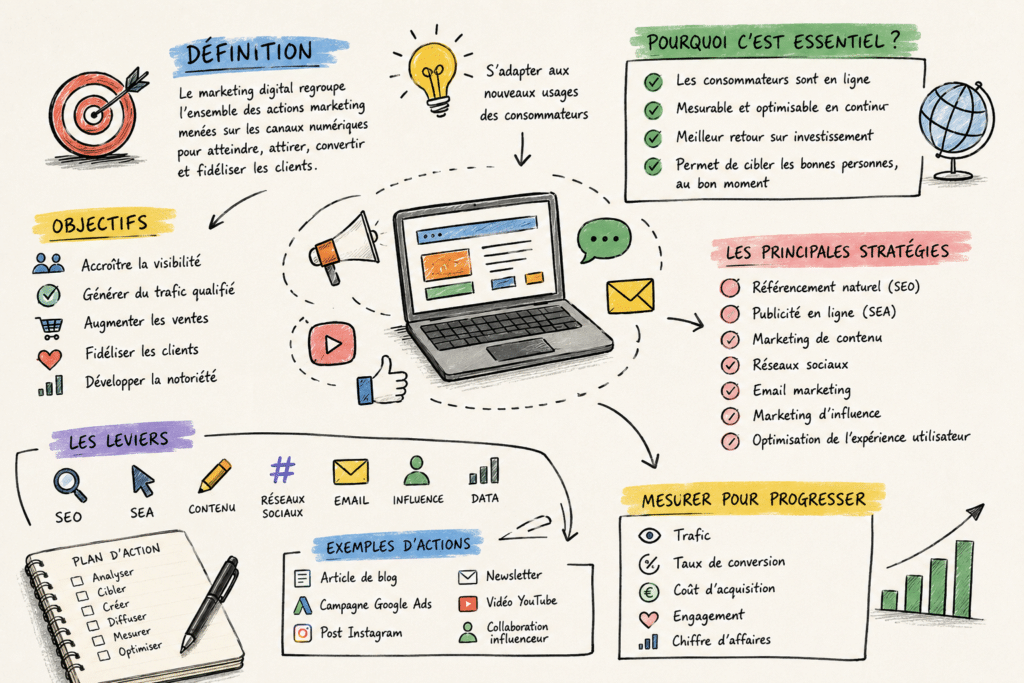 DÉFINITION
Le marketing digital regroupe
l'ensemble des actions marketing
menées sur les canaux numériques
pour atteindre, attirer, convertir
et fidéliser les clients.
S'adapter aux
nouveaux usages
des consommateurs
POURQUOI C'EST ESSENTIEL ?
Les consommateurs sont en ligne
Mesurable et optimisable en continu
Meilleur retour sur investissement
Permet de cibler les bonnes personnes,
au bon moment
OBJECTIFS
Accroître la visibilité
Générer du trafic qualifié
Augmenter les ventes
Fidéliser les clients
Développer la notoriété
LES PRINCIPALES STRATÉGIES
Référencement naturel (SEO)
Publicité en ligne (SEA)
Marketing de contenu
Réseaux sociaux
Email marketing
Marketing d'influence
Optimisation de l'expérience utilisateur
LES LEVIERS
SEO
SEA
CONTENU
#
RÉSEAUX
SOCIAUX
EMAIL
INFLUENCE
DATA
PLAN D'ACTION
Analyser
Cibler
Créer
Diffuser
Mesurer
Optimiser
EXEMPLES D'ACTIONS
Article de blog
Campagne Google Ads
Post Instagram
Newsletter
Vidéo YouTube
Collaboration
influenceur
MESURER POUR PROGRESSER
Trafic
% Taux de conversion
€ Coût d'acquisition
Engagement
Chiffre d'affaires